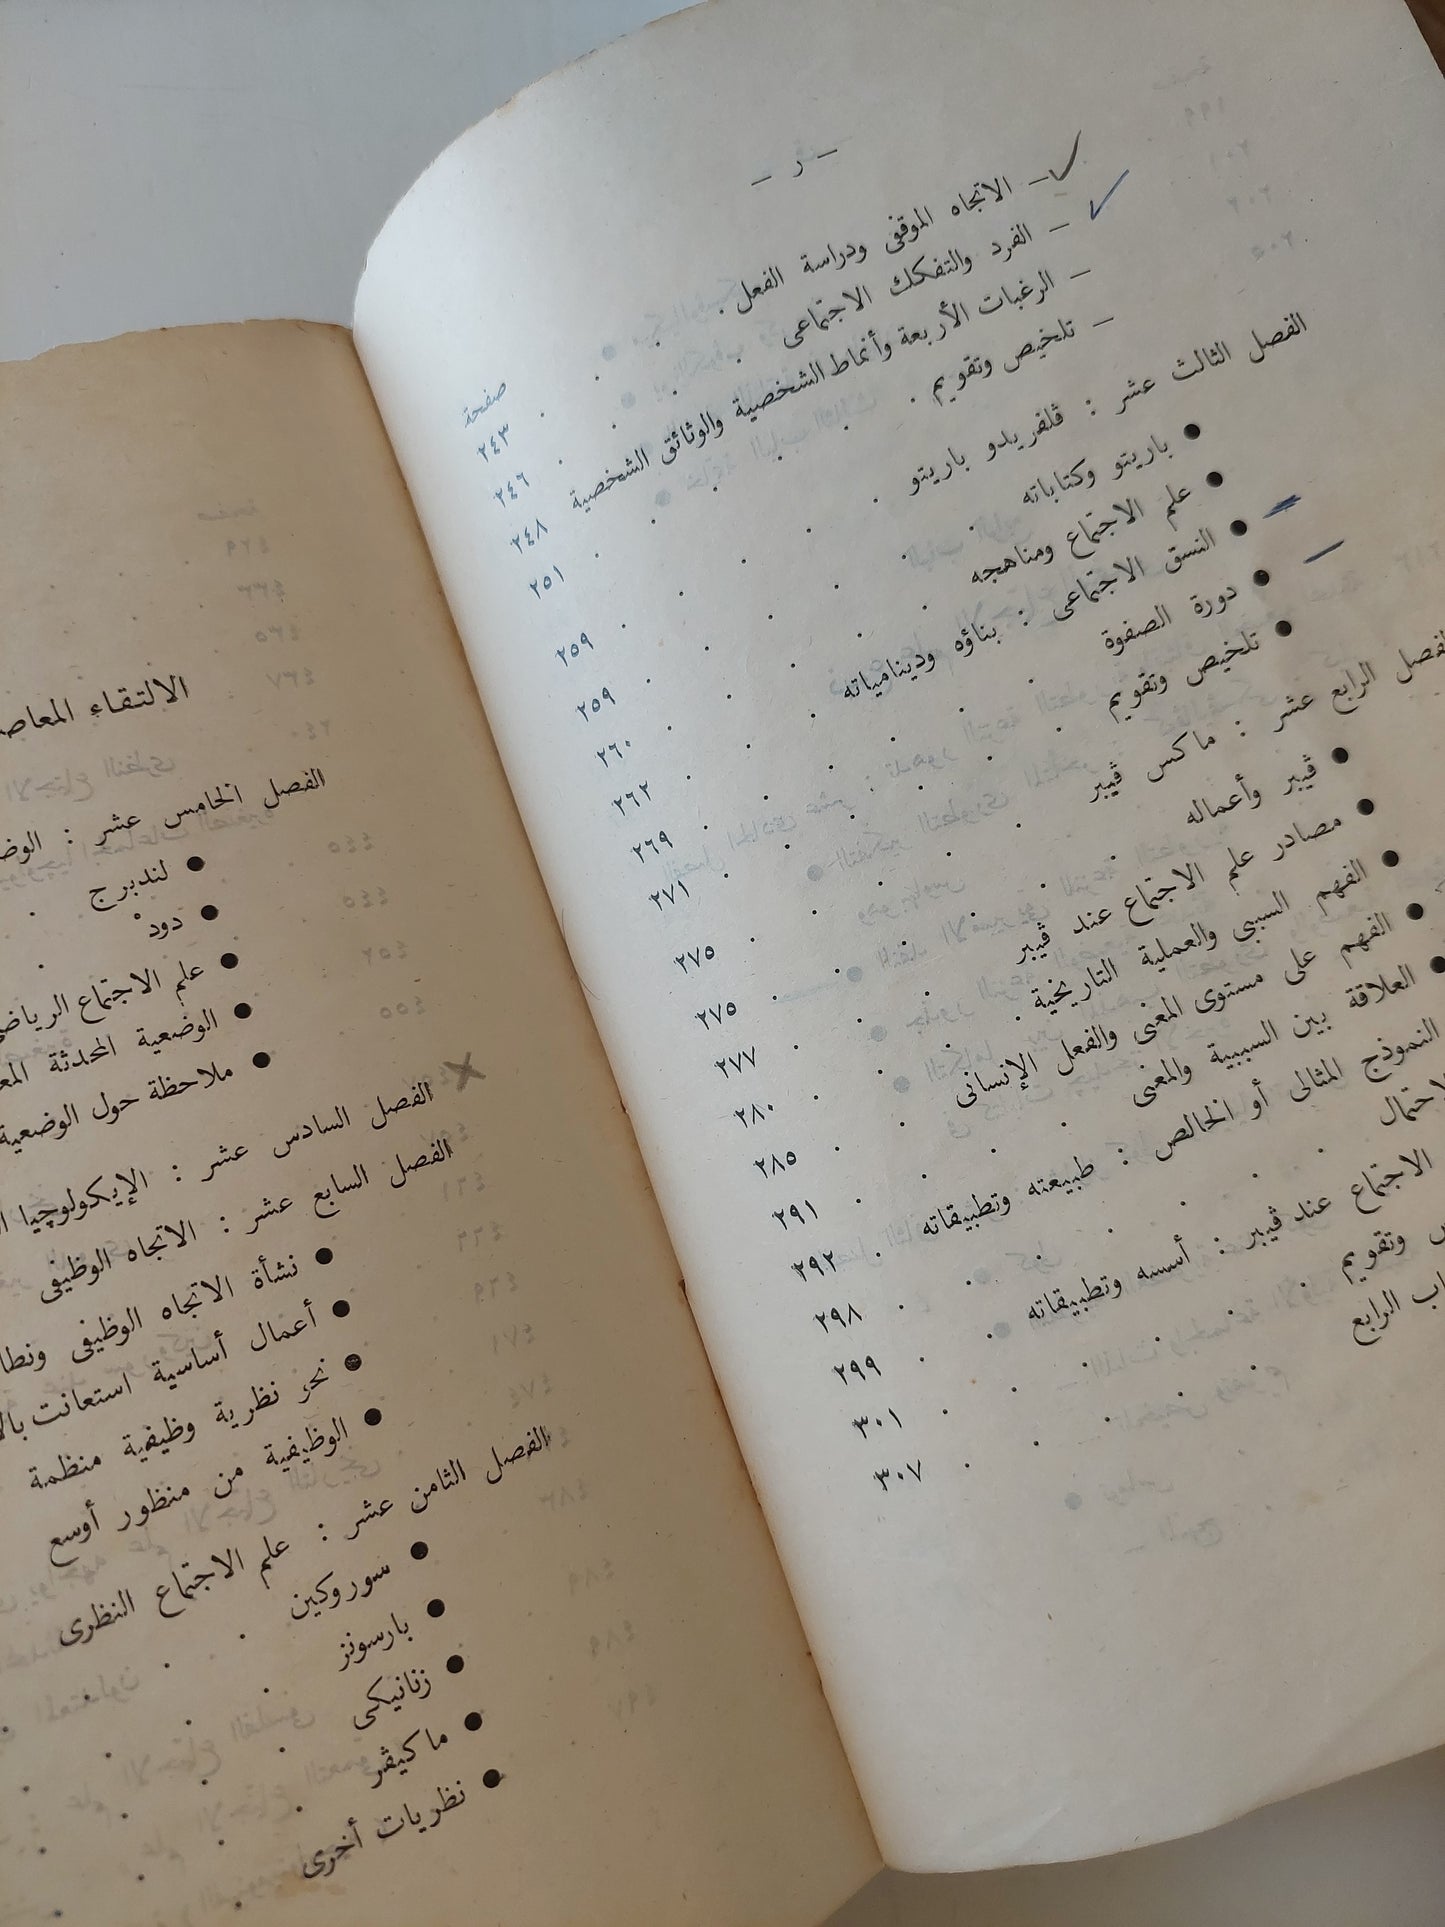 — ر —
صفحة
— الاتجاه الموقفى ودراسة الفعل . . . ٢٤٣
— الفرد والتفكك الاجتماعى . . . . ٢٤٦
— الرغبات الأربعة وأنماط الشخصية والوثائق الشخصية ٢٤٨
— تلخيص وتقويم . . . . . . ٢٥١
الفصل الثالث عشر : ڤلفريدو باريتو . . . . . ٢٥٩
● باريتو وكتاباته . . . . . ٢٥٩
● علم الاجتماع ومناهجه . . . . . ٢٦٠
● النسق الاجتماعى : بناؤه ودينامياته . . . ٢٦٢
● دورة الصفوة . . . . . ٢٦٩
● تلخيص وتقويم . . . . . . ٢٧١
الفصل الرابع عشر : ماكس ڤيبر . . . . . ٢٧٥
● ڤيبر وأعماله . . . . . ٢٧٥
● مصادر علم الاجتماع عند ڤيبر . . . ٢٧٧
● الفهم السببى والعملية التاريخية . . . . ٢٨٠
● الفهم على مستوى المعنى والفعل الإنسانى . . ٢٨٥
● العلاقة بين السببية والمعنى . . . . ٢٩١
النموذج المثالى أو الخالص : طبيعته وتطبيقاته . ٢٩٢
. . . . . ٢٩٨
الاجتماع عند ڤيبر : أسسه وتطبيقاته . . ٢٩٩
وتقويم . . . . . ٣٠١
الرابع . . . . ٣٠٧
الالتقاء
الفصل الخامس عشر :
● لندبرج
● دود
● علم الاجتماع
● الوضعية المحدثة
● ملاحظة حول الوضعية
الفصل السادس عشر : الإيكولوجيا
الفصل السابع عشر : الاتجاه الوظيفى
● نشأة الاتجاه الوظيفى
● أعمال أساسية استعانت
● نحو نظرية وظيفية منظمة
● الوظيفية من منظور أوسع
الفصل الثامن عشر : علم الاجتماع النظرى
● سوروكين
● بارسونز
● زنانيكى
● ماكيڤر
● نظريات أخرى